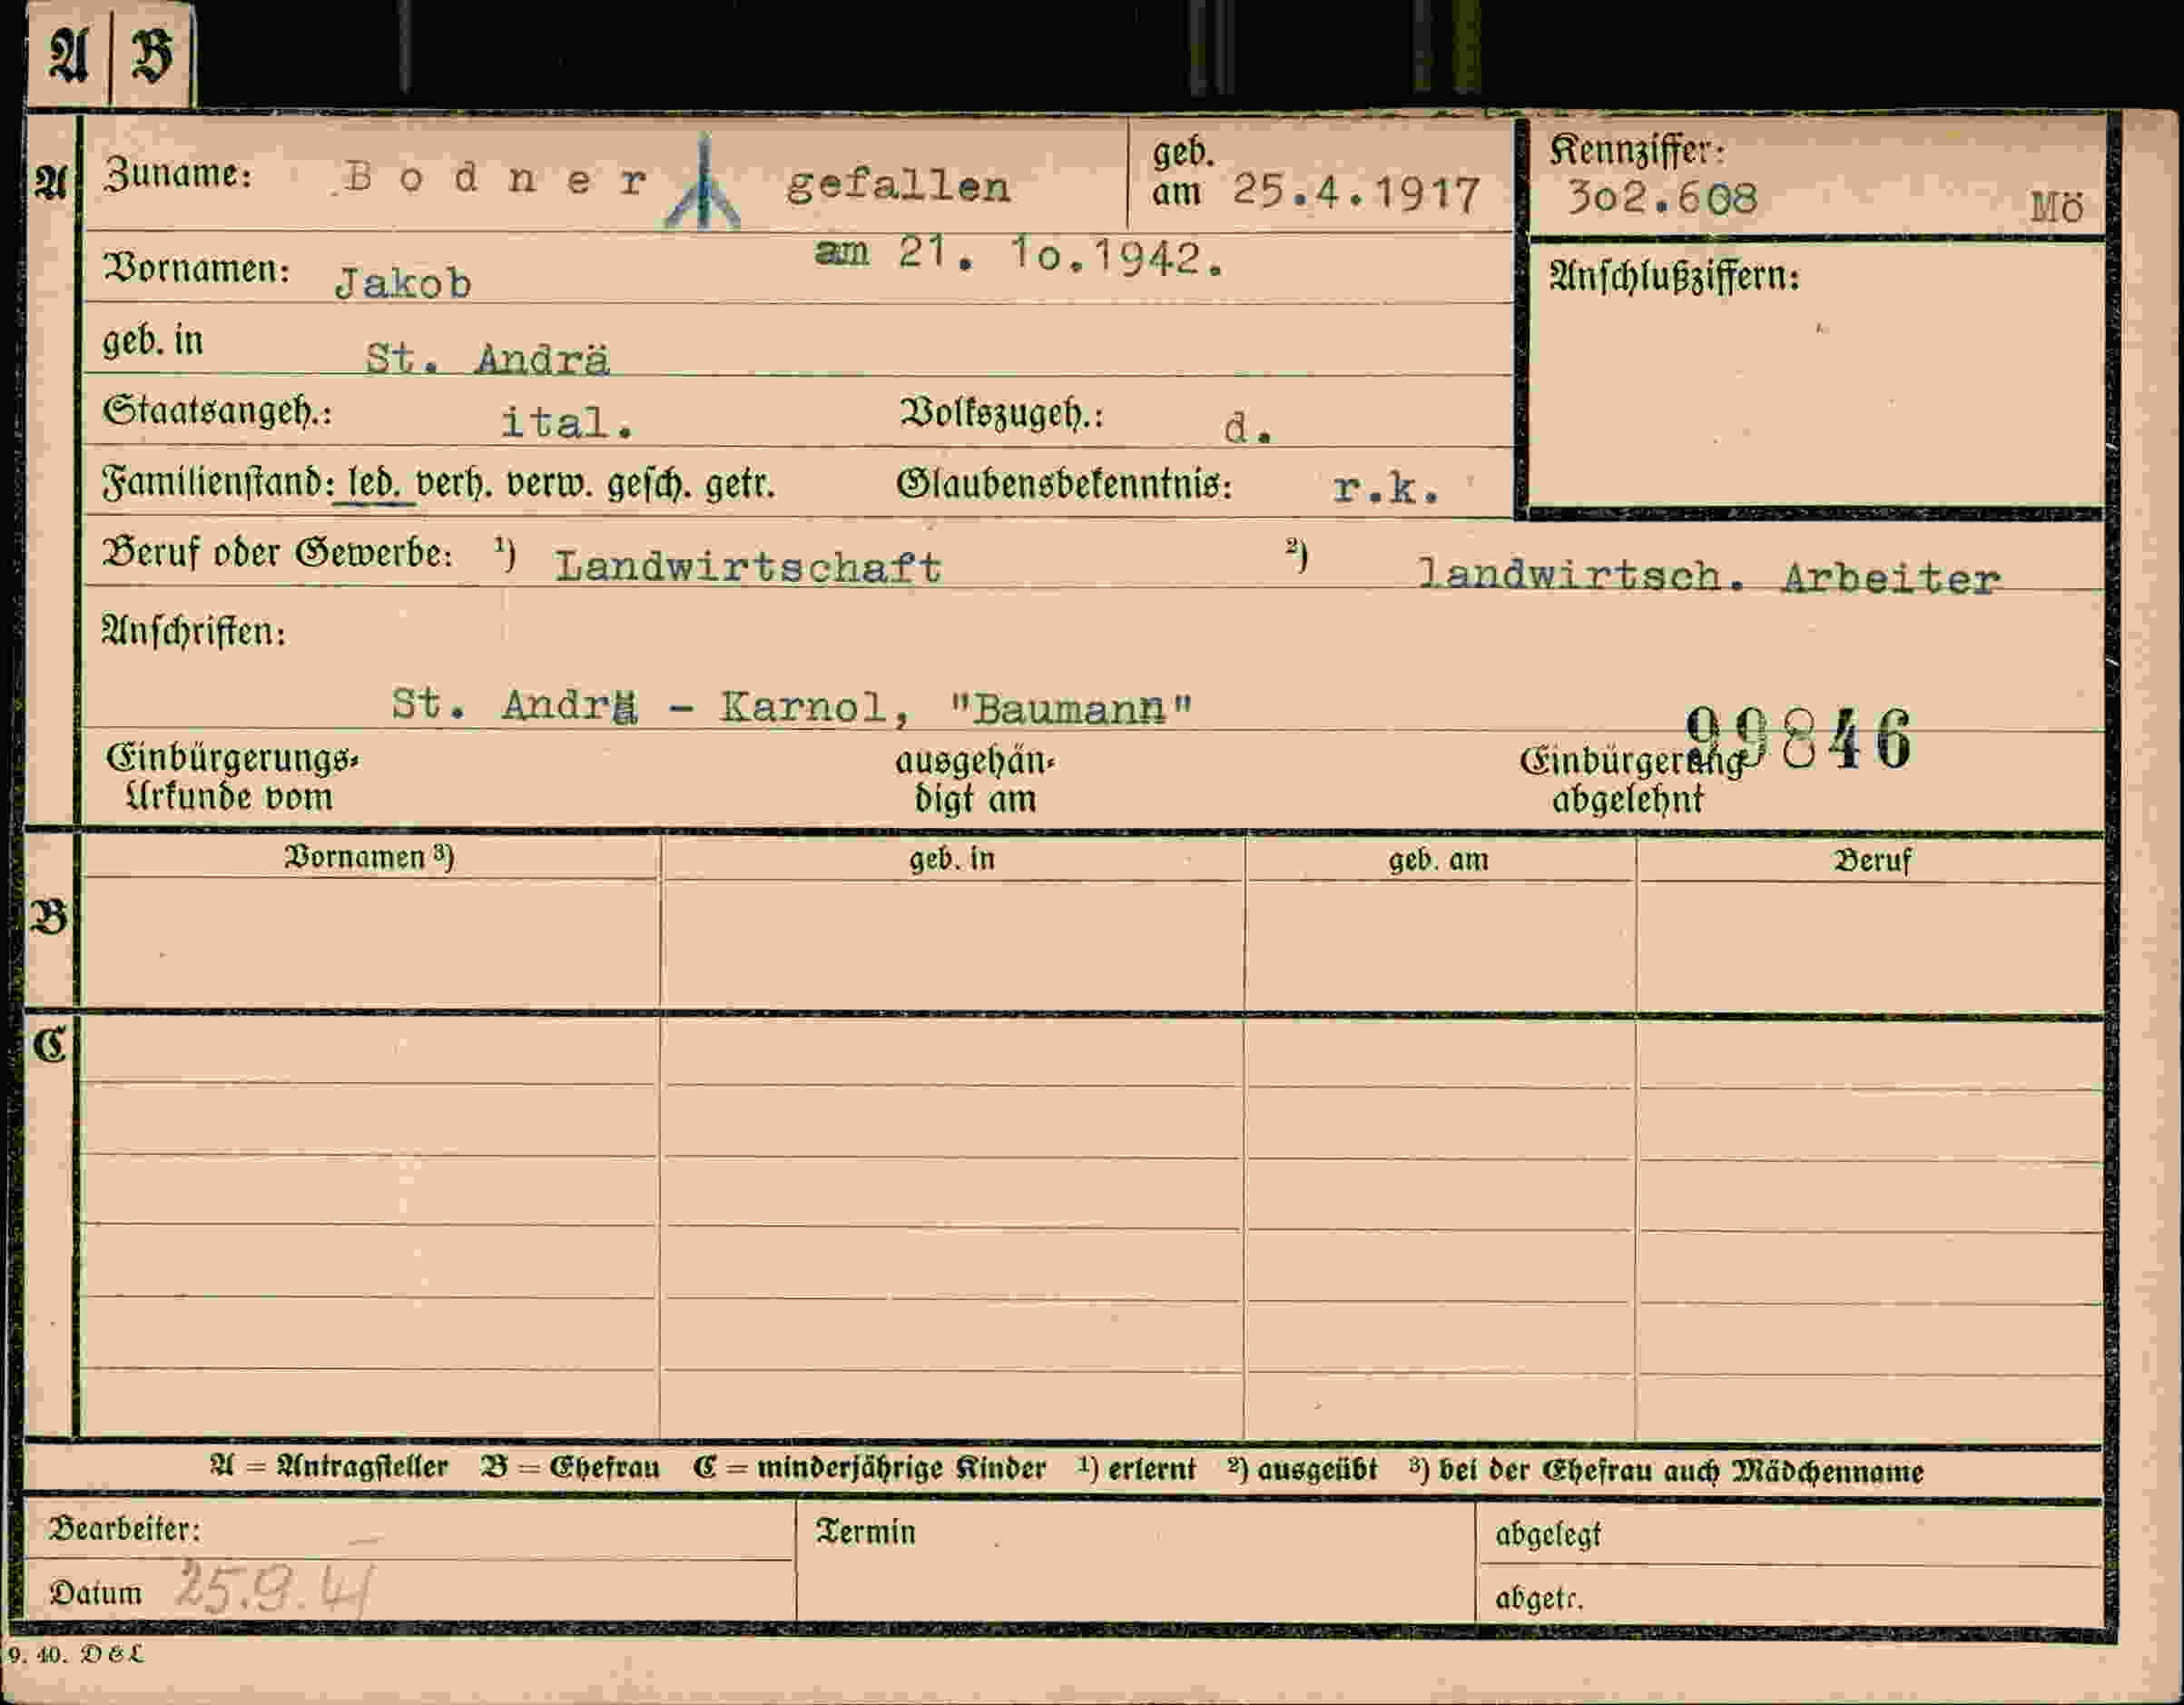 A | B
A
Zuname: Bodner gefallen geb. am 25.4.1917 Kennziffer: 3o2.608 Mö
am 21. 1o.1942.
Vornamen: Jakob Anschlußziffern:
geb. in St. Andrä
Staatsangeh.: ital. Volkszugeh.: d.
Familienstand: led. verh. verw. gesch. getr. Glaubensbekenntnis: r.k.
Beruf oder Gewerbe: ¹) Landwirtschaft ²) landwirtsch. Arbeiter
Anschriften:
St. Andrä - Karnol, "Baumann"
99846
Einbürgerungs- ausgehän- Einbürgerung
Urkunde vom digt am abgelehnt
Vornamen ³) geb. in geb. am Beruf
B
C
A = Antragsteller B = Ehefrau C = minderjährige Kinder ¹) erlernt ²) ausgeübt ³) bei der Ehefrau auch Mädchenname
Bearbeiter: Termin abgelegt
Datum 25.9.41 abgetr.
9. 40. D & L